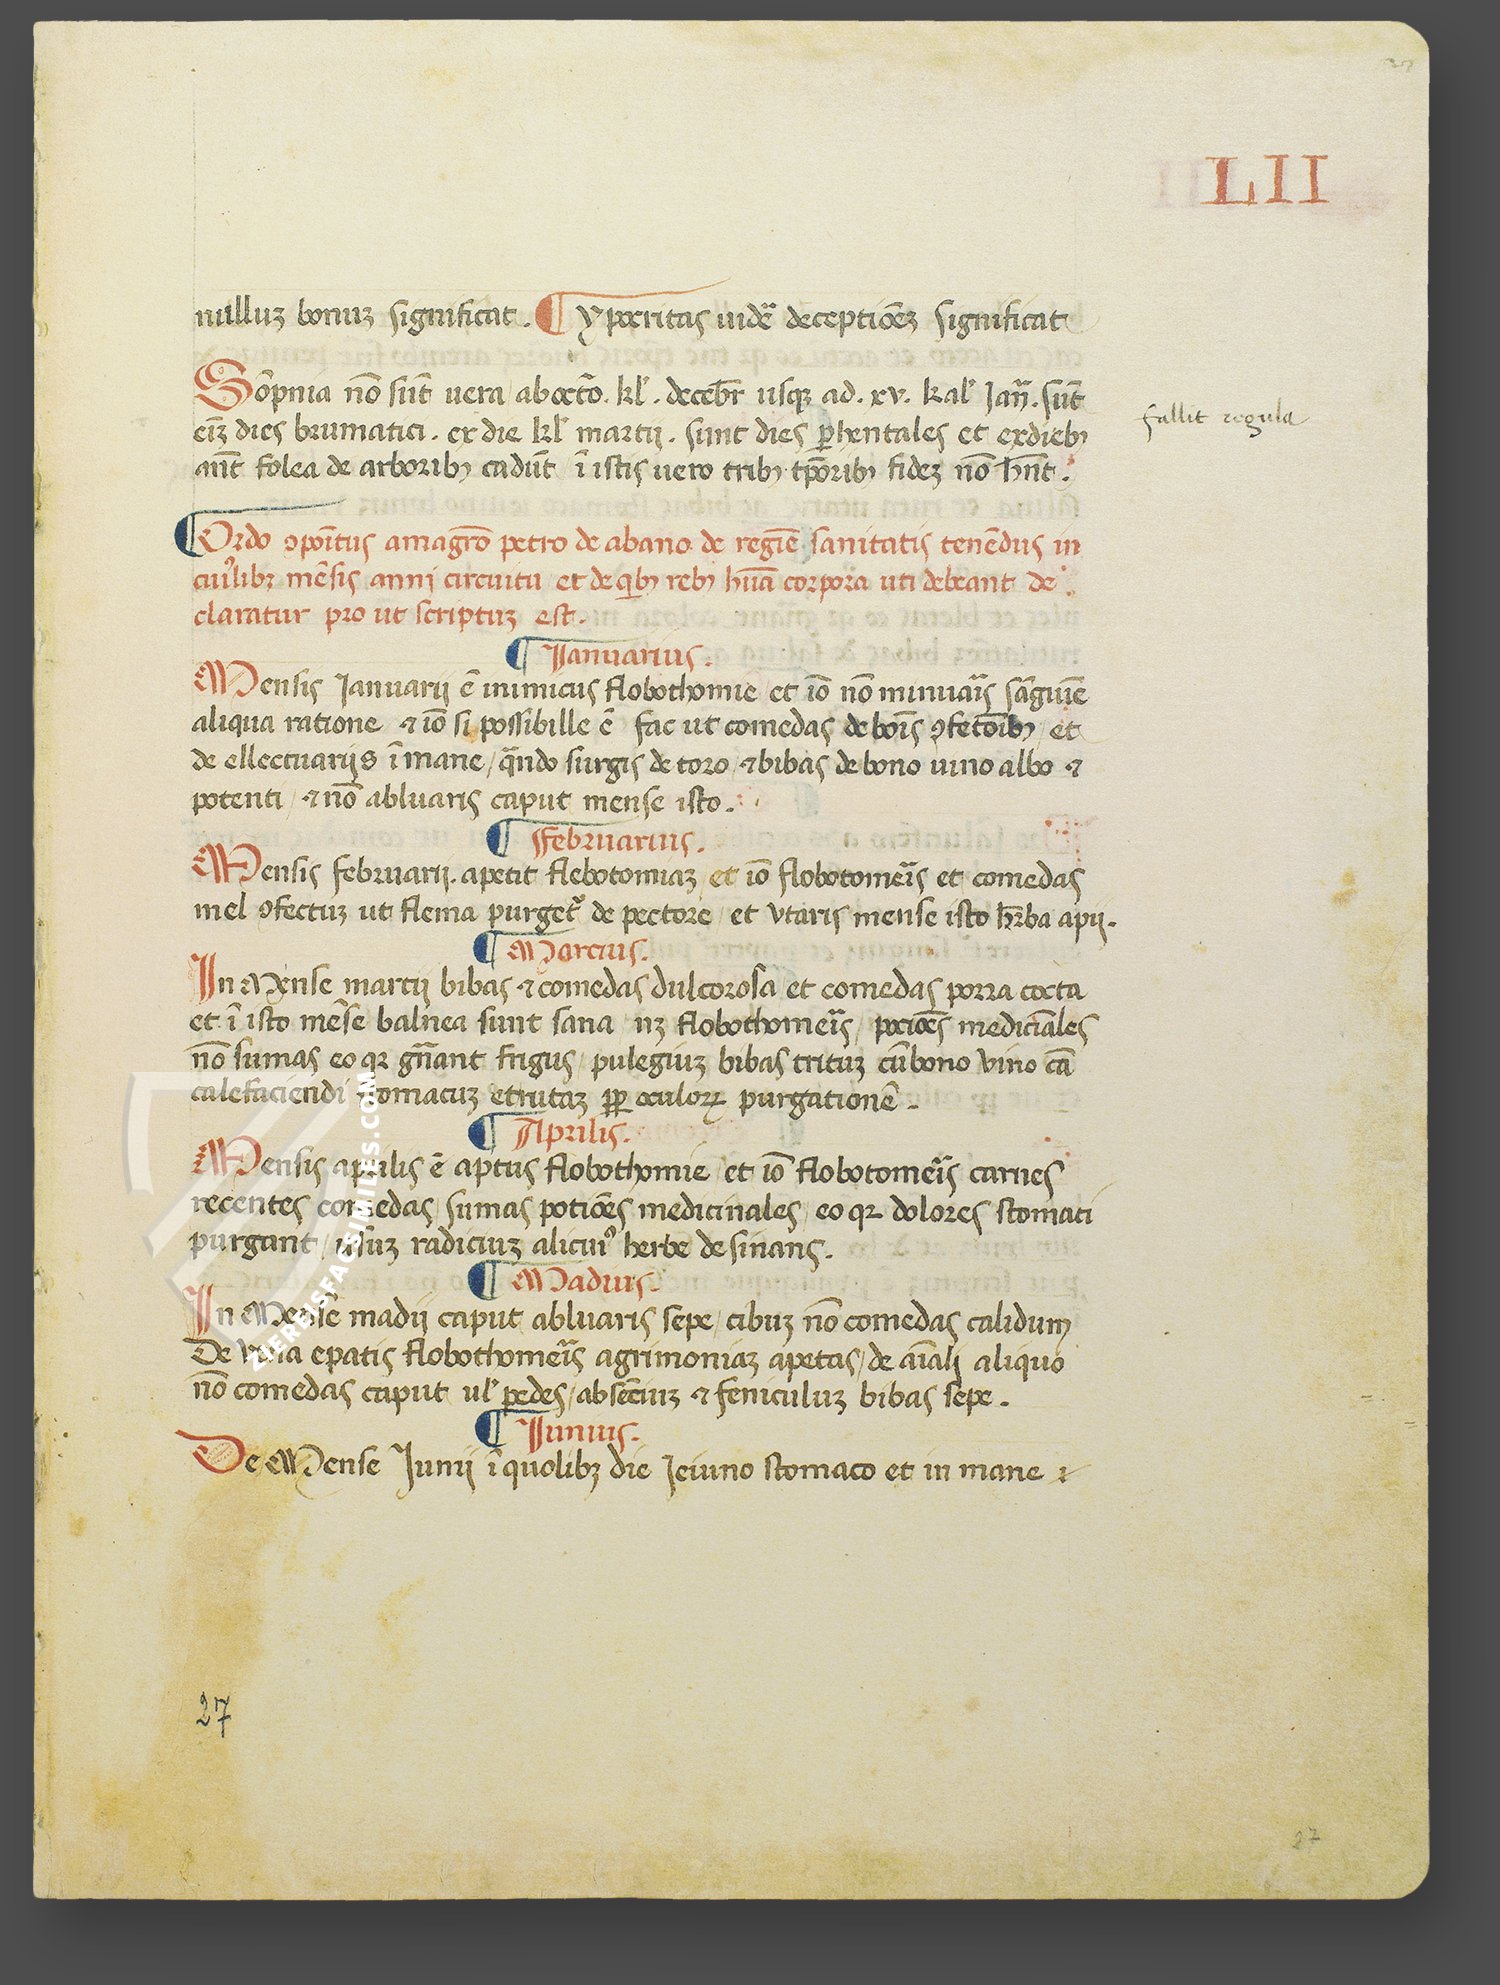 LII
nulluz bonuz significat. ¶ ypocritas uidē deceptiōez significat
Sōpnia nō sūt uera aboctō. kl'. decēbr usqz ad. xv. kal' Jan̄. sūt
fallit regula
eīz dies brumatici. ex die kl' martij. sunt dies phentales et ex diebz
ant folea de arboribz cadūt ī istis uero tribz tpōribz fidez nō hnt.
¶ Ordo ɔpoītus amagrō petro de abano de regīe sanitatis tenēdus in
cuiuslibz mēsis anni circuitu et de qibz rebz hūa corpora uti debeant de
claratur pro ut scriptuz est.
¶ Januarius.
Mensis Januarij ē inimicus flobothomie et iō nō minuaīs sāguinē
aliqua ratione ⁊ iō si possibille ē fac ut comedas de boīs ɔfetōibz / et
de ellectuarijs ī mane / qn̄do surgis de toro / ⁊ bibas de bono uino albo ⁊
potenti / ⁊ nō abluaris caput mense isto.
¶ Februarius.
Mensis februarij. apetit flebotomiaz et iō flobotomēis et comedas
mel ɔfectuz ut flema purget' de pectore et vtaris mense isto hrba apij.
¶ Marcius.
In Mense martij bibas ⁊ comedas dulcorosa et comedas porra cocta
et ī isto mēse balnea sunt sana nz flobothomeis / pociōes mediciales
nō sumas eo qr gn̄ant frigus / pulegiuz bibas trituz cūbono vino cā
calefaciendi stomacuz et rutaz pp oculorz purgationē.
¶ Aprilis.
Mensis aprilis ē aptus flobothomie / et iō flobotomeis carnes
recentes comedas / sumas potiōes medicinales / eo qr dolores stomati
purgant / usuz radiciuz alicui' herbe desinans.
¶ Madius.
In Mense madij caput abluaris sepe / cibuz nō comedas calidum
De vena epatis flobothomeis agrimoniaz apetas / de aīali aliquo
nō comedas caput ul' pedes / absēciuz ⁊ feniculuz bibas sepe.
¶ Junius.
De Mense Junij ī quolibz die Jeiuno stomaco et in mane ⁊
27
27
ZIEREISFACSIMILES.COM